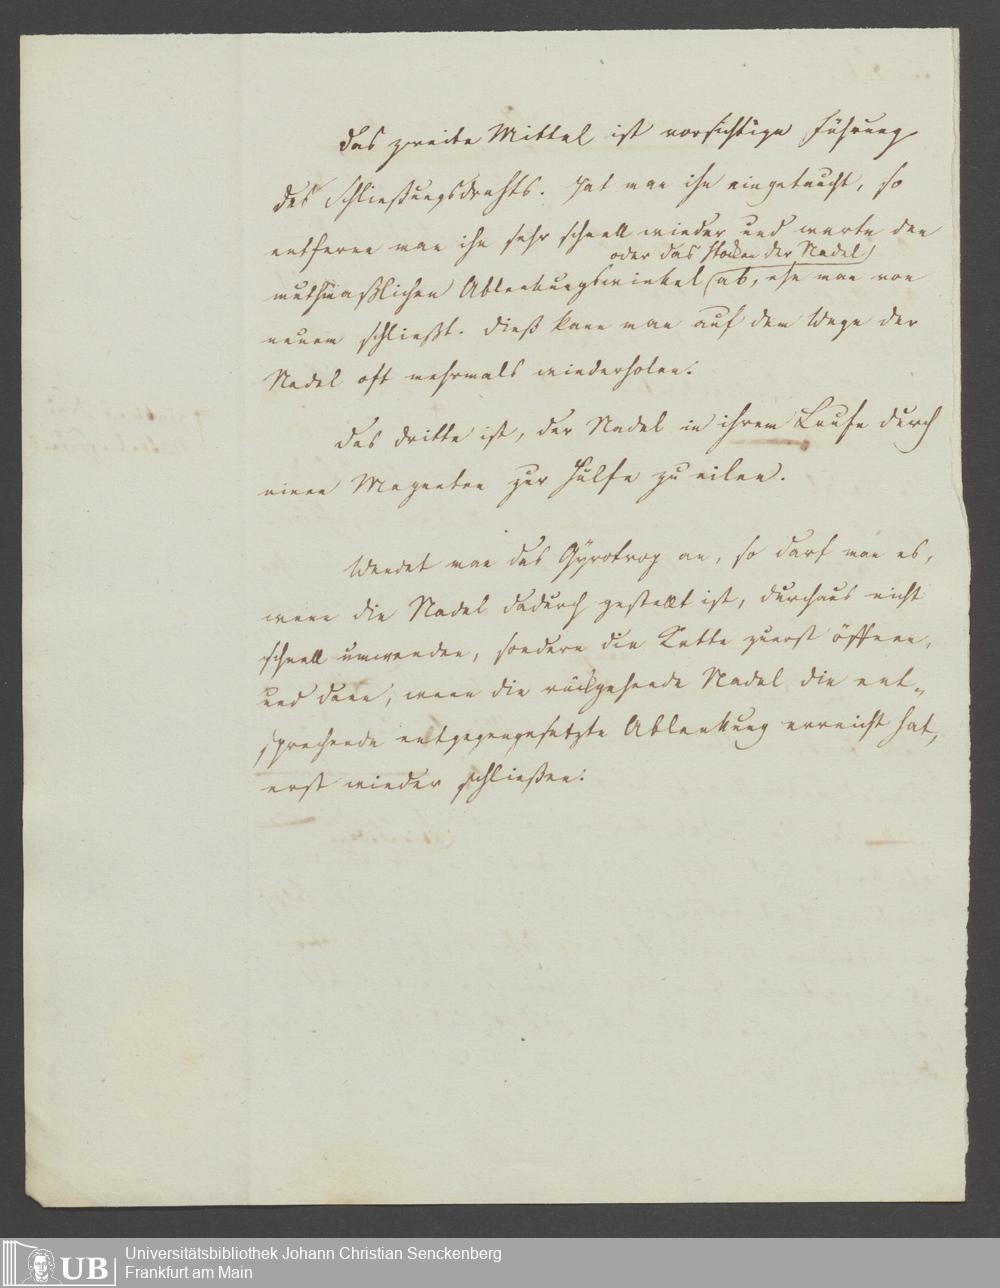 Das zweite Mittel ist vorsichtige Führung
des Schließungsdrahts. Hat man ihn eingetaucht, so
entferne man ihn sehr schnell wieder und warte den
oder das Stocken der Nadel
muthmaßlichen Ablenkungswinkel ab, ehe man von
neuem schließt. Dieß kann man auf dem Wege der
Nadel oft mehrmals wiederholen.
Das dritte ist, der Nadel in ihrem Laufe durch
einen Magneten zur Hülfe zu eilen.
Wendet man das Gyrotrop an, so darf man es,
wenn die Nadel dadurch gestellt ist, durchaus nicht
schnell umwenden, sondern die Kette zuerst öffnen,
und dann, wenn die rückgehende Nadel die ent-
sprechende entgegengesetzte Ablenkung erreicht hat,
erst wieder schließen.
UB
Universitätsbibliothek Johann Christian Senckenberg
Frankfurt am Main